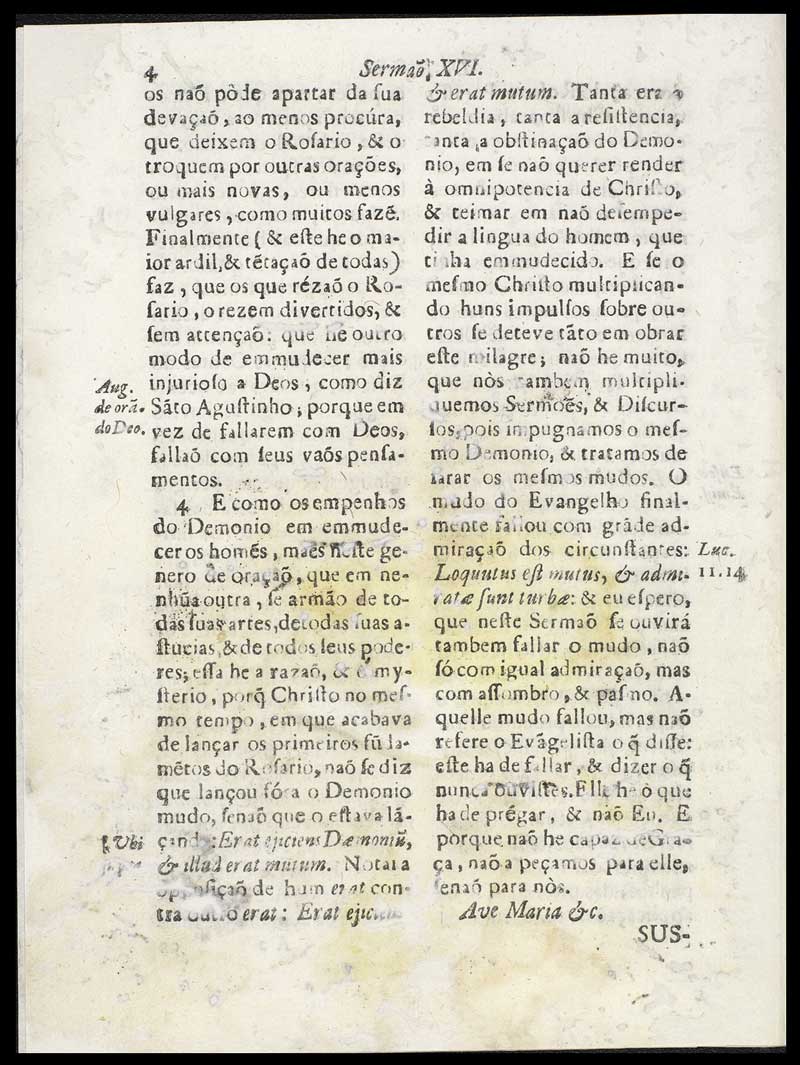 4 Sermaõ XVI.
os naõ pòde apartar da ſua
devaçaõ, ao menos procúra,
que deixem o Roſario, & o
troquem por outras orações,
ou mais novas, ou menos
vulgares, como muitos fazẽ.
Finalmente ( & eſte he o ma-
ior ardil, & tẽtaçaõ de todas)
faz, que os que rézaõ o Ro-
ſario, o rezem divertidos, &
ſem attençaõ: que he outro
modo de emmudecer mais
Aug. injurioſo a Deos, como diz
de orã. Sãto Aguſtinho; porque em
do Deo. vez de fallarem com Deos,
fallaõ com ſeus vaõs penſa-
mentos.
4 E como os empenhos
do Demonio em emmude-
cer os homẽs, mais neſte ge-
nero de oraçaõ, que em ne-
nhũa outra, ſe armão de to-
das ſuas artes, de todas ſuas a-
ſtucias, & de todos ſeus pode-
res; eſſa he a razaõ, & o my-
ſterio, porq̃ Chriſto no meſ-
mo tempo, em que acabava
de lançar os primeiros fũda-
mẽtos do Roſario, naõ ſe diz
que lançou fóra o Demonio
mudo, ſenaõ que o eſtava lã-
Ubi çando: Erat ejiciens Dæmoniũ,
& illud erat mutum. Notai a
oppoſiçaõ de hum erat con-
tra outro erat: Erat ejiciens
& erat mutum. Tanta era a
rebeldia, tanta a reſiſtencia,
tanta a obſtinaçaõ do Demo-
nio, em ſe naõ querer render
à omnipotencia de Chriſto,
& teimar em naõ deſempe-
dir a lingua do homem, que
tinha emmudecido. E ſe o
meſmo Chriſto multiplican-
do huns impulſos ſobre ou-
tros ſe deteve tãto em obrar
eſte milagre; naõ he muito,
que nòs tambem multipli-
quemos Sermões, & Diſcur-
ſos, pois impugnamos o meſ-
mo Demonio, & tratamos de
ſarar os meſmos mudos. O
mudo do Evangelho final-
mente fallou com grãde ad-
miraçaõ dos circunſtantes: Luc.
Loquutus eſt mutus, & admi- 11.14.
ratæ ſunt turbæ: & eu eſpero,
que neſte Sermaõ ſe ouvirá
tambem fallar o mudo, naõ
ſó com igual admiraçaõ, mas
com aſſombro, & paſmo. A-
quelle mudo fallou, mas naõ
refere o Evãgeliſta o q̃ diſſe:
eſte ha de fallar, & dizer o q̃
nunca ouviſtes. Elle he o que
ha de prégar, & naõ Eu. E
porque naõ he capaz de Gra-
ça, naõ a peçamos para elle,
ſenaõ para nòs.
Ave Maria &c.
SUS-